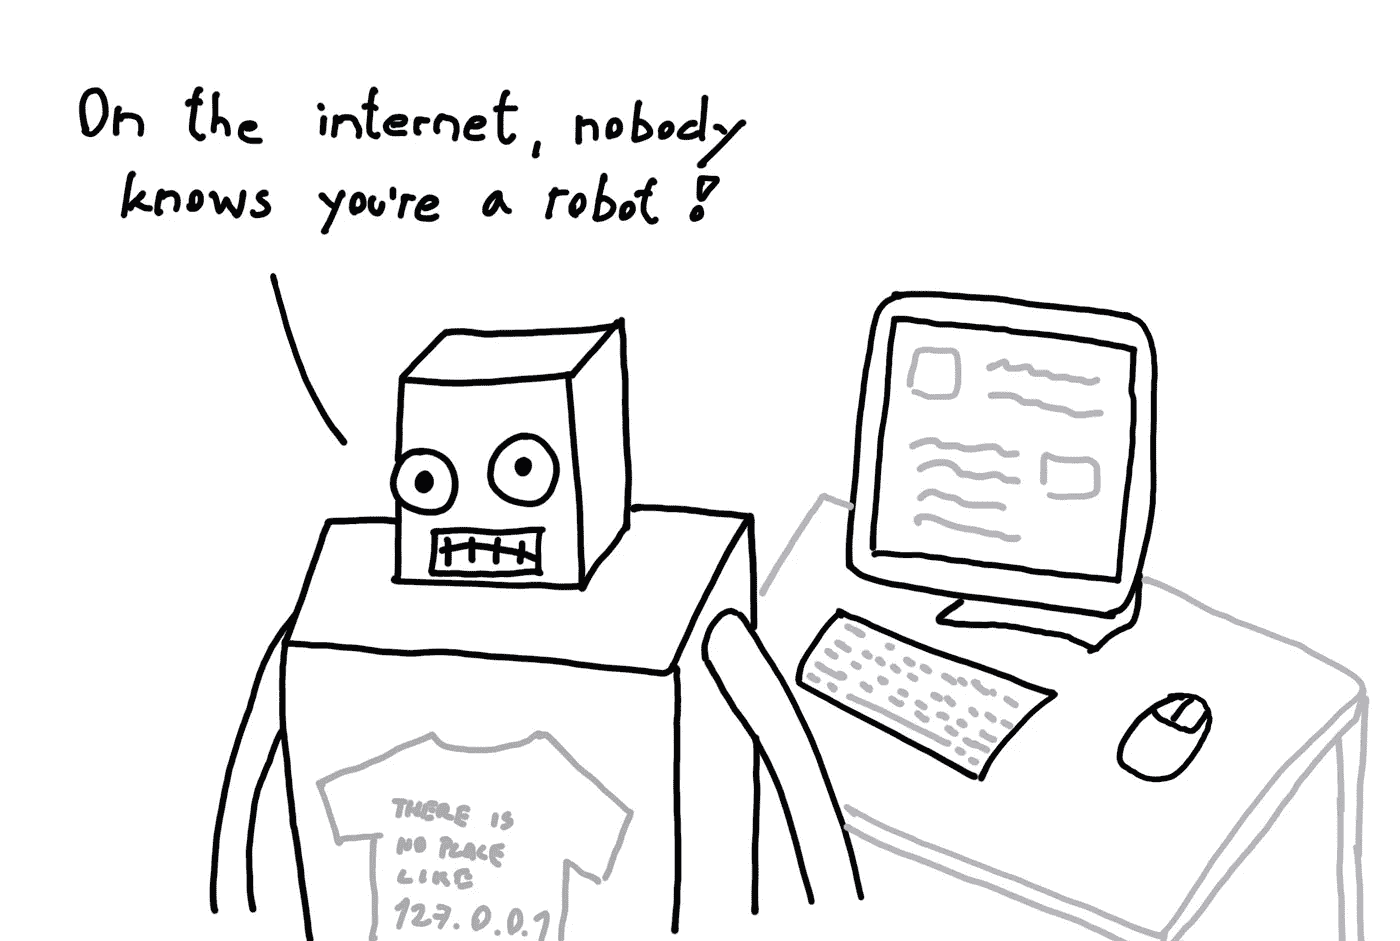 On the internet, nobody
knows you're a robot!
THERE IS
NO PLACE
LIKE
127.0.0.1